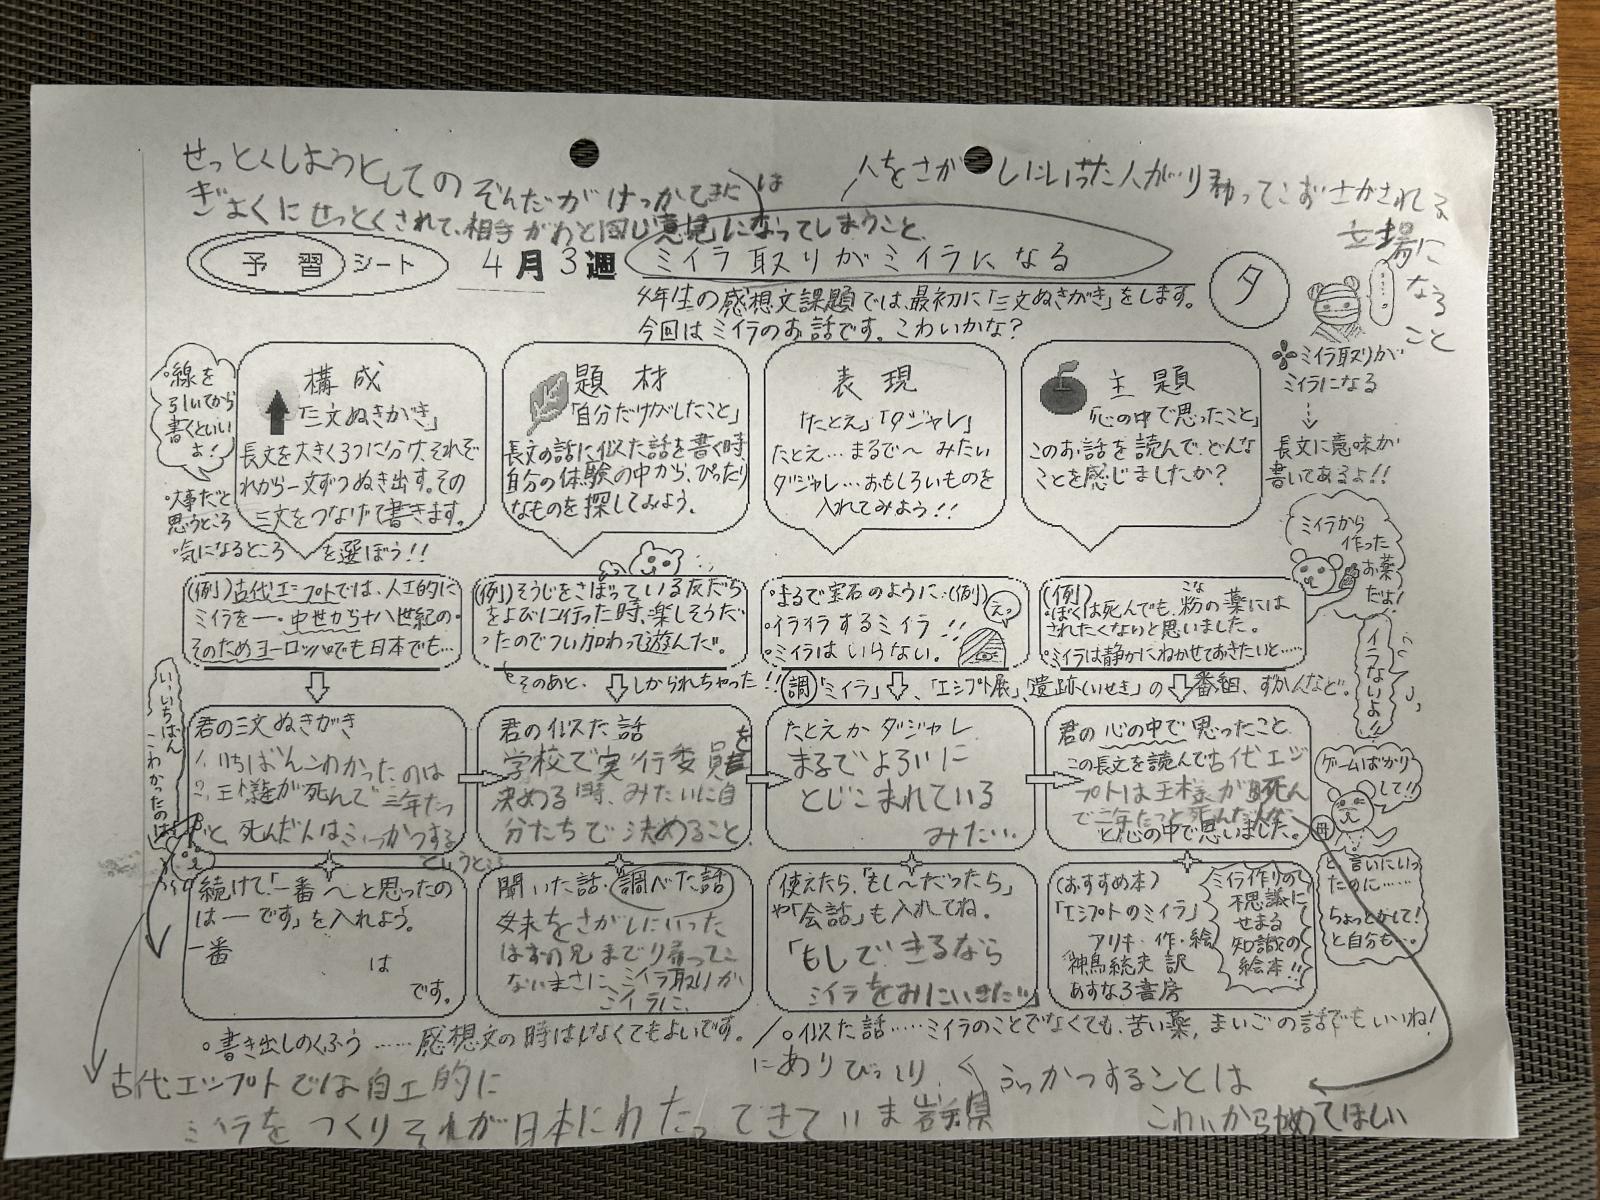 せっとくしようとしての
ぎゃくにせっとくされて、相手がわと同じ意見になってしまうこと、
人をさがしにいった人が
立場に
なる
こと
予習シート
4月3週
ミイラ取りがミイラになる
タ
4年生の感想文課題では、最初に「三文ぬきがき」をします。
今回はミイラのお話です。こわいかな?
ミイラ取りが
ミイラになる
長文に意味が
書いてあるよ!!
線を
引いてから
書くといい
よ!
構成
「三文ぬきがき」
長文を大きく3つに分け、それぞ
れから一文ずつぬき出す。その
三文をつなげて書きます。
・大事だと
思うところ
・気になるところ を選ぼう!!
題材
「自分だけがしたこと」
長文の話に似た話を書く時、
自分の体験の中から、ぴったり
なものを探してみよう。
表現
「たとえ」「ダジャレ」
たとえ…まるで〜みたい
ダジャレ…おもしろいものを
入れてみよう!!
主題
「心の中で思ったこと」
このお話を読んで、どんな
ことを感じましたか?
ミイラから
作った
お薬
だよ!
(例)古代エジプトでは、人工的に
ミイラを―・中世から十八世紀の・
そのためヨーロッパでも日本でも…
(例)そうじをさぼっている友だち
をよびに行った時、楽しそうだ
ったのでつい加わって遊んだ。
そのあと、しかられちゃった!!
・まるで宝石のように(例)
・イライラするミイラ!!
・ミイラはいらない。
え。
(例)
・ぼくは死んでも、粉の薬には
こな
されたくないと思いました。
・ミイラは静かにねかせておきたいと……
イラないよ!!
調「ミイラ」、「エジプト展」、「遺跡(いせき)」の番組、ずかんなど。
いいちばん
こわかったのは
君の三文ぬきがき
1. いちばんこわかったのは
と、死んだ人は
君の似た話
学校で実行委員を
決める時、みたいに自
分たちで決めること
たとえかダジャレ
まるでよろいに
とじこまれている
みたい..
君の心の中で思ったこと
この長文を読んで古代エジ
プトは王様が死ん
と心の中で思いました。
ゲームばかり
して!!
母
と、言いにいっ
たのに……
ちょっとかして!
と自分も…。
続けて「一番〜と思ったの
は―です」を入れよう。
一番
は
です。
聞いた話・調べた話
妹をさがしにいった
はずの兄まで
ないまさに、ミイラ取りが
ミイラに、
使えたら、「もし〜だったら」
や「会話」も入れてね。
「もしできるなら
ミイラをみにいきたい」
(おすすめ本)
「エジプトのミイラ」
アリキ・作・絵
神鳥統夫 訳
あすなろ書房
ミイラ作りの
不思議に
せまる
知識の
絵本!!
・書き出しのくふう……感想文の時はなくてもよいです。/・似た話……ミイラのことでなくても、苦い薬、まいごの話でもいいね!
にありびっくり、
古代エジプトでは自工的に
ミイラをつくりそれが日本にわたってきていま
することは
こわいからやめてほしい